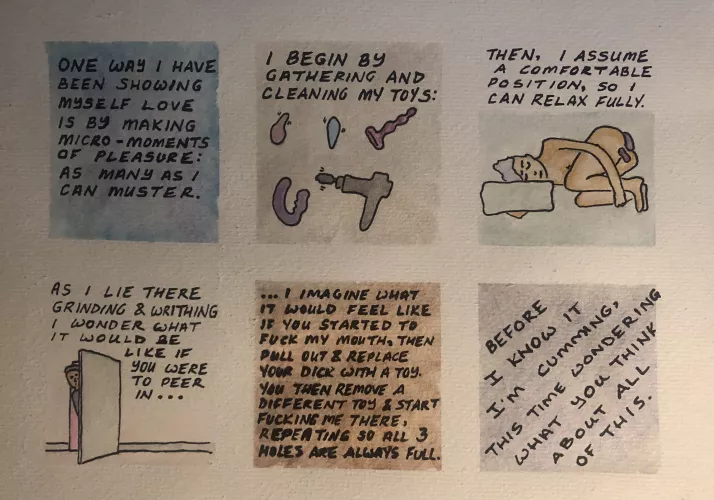 ONE WAY I HAVE
BEEN SHOWING
MYSELF LOVE
IS BY MAKING
MICRO-MOMENTS
OF PLEASURE:
AS MANY AS I
CAN MUSTER.
I BEGIN BY
GATHERING AND
CLEANING MY TOYS:
THEN, I ASSUME
A COMFORTABLE
POSITION, SO I
CAN RELAX FULLY.
AS I LIE THERE
GRINDING & WRITHING
I WONDER WHAT
IT WOULD BE
LIKE IF
YOU WERE
TO PEER
IN...
...I IMAGINE WHAT
IT WOULD FEEL LIKE
IF YOU STARTED TO
FUCK MY MOUTH, THEN
PULL OUT & REPLACE
YOUR DICK WITH A TOY.
YOU THEN REMOVE A
DIFFERENT TOY & START
FUCKING ME THERE,
REPEATING SO ALL 3
HOLES ARE ALWAYS FULL.
BEFORE
I KNOW IT
I'M CUMMING,
THIS TIME WONDERING
WHAT YOU THINK
ABOUT ALL
OF THIS.